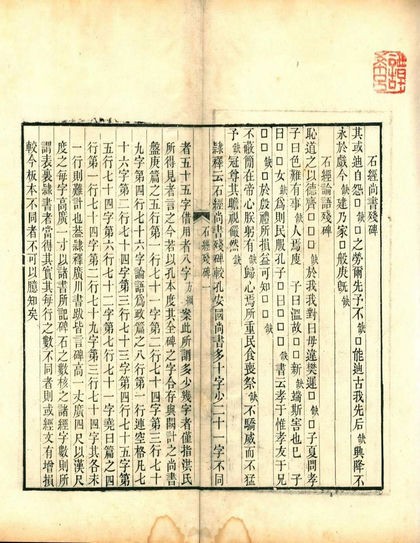 石經尚書殘碑
其或迪自怨□缺□之勞爾先予不缺□能迪古我先后缺興降不
永於戲今缺建乃家□般庚旣缺
石經論語殘碑
恥道之以德齊□□□缺於我我對曰毋違樊遲□缺□子夏問孝
子曰色難有事缺人焉廋 子曰溫故□□新缺端斯害也已 子
□□□女缺爲則民服孔子□曰□□□缺書云孝于惟孝友于兄
□□□缺於殷禮所損益可知□□缺
不敢簡在帝心朕躬有缺歸心焉所重民食喪祭缺不驕威而不猛
予缺冠尊其瞻視儼然缺
隸釋云石經尚書殘碑較孔安國尚書多十字少二十一字不同
石經殘碑 一
者五十五字借用者八字 案此所謂多少幾字者僅指洪氏
所得見者言之今若以孔本度其全碑之字合存與闕計之尚書
盤庚篇之五行第一行七十一字第二行七十四字第三行七十
九字第四行七十六字論語爲政篇之八行第一行連空格凡七
十六字第二行七十四字第三行七十三字第四行七十五字第
五行七十四字第六行七十一字第七行七十一字堯曰篇之四
行第一行七十四字第二行七十九字第三行七十四字其各末
一行則難計也葢隸釋廣川書跋皆言碑高一丈廣四尺以漢尺
度之每字高廣一寸以諸書所記碑石之數核之諸經字數則所
謂表裏隸書者當得其實其每行之數不同者則或經文有增損
較今板本不同者不可以臆知矣